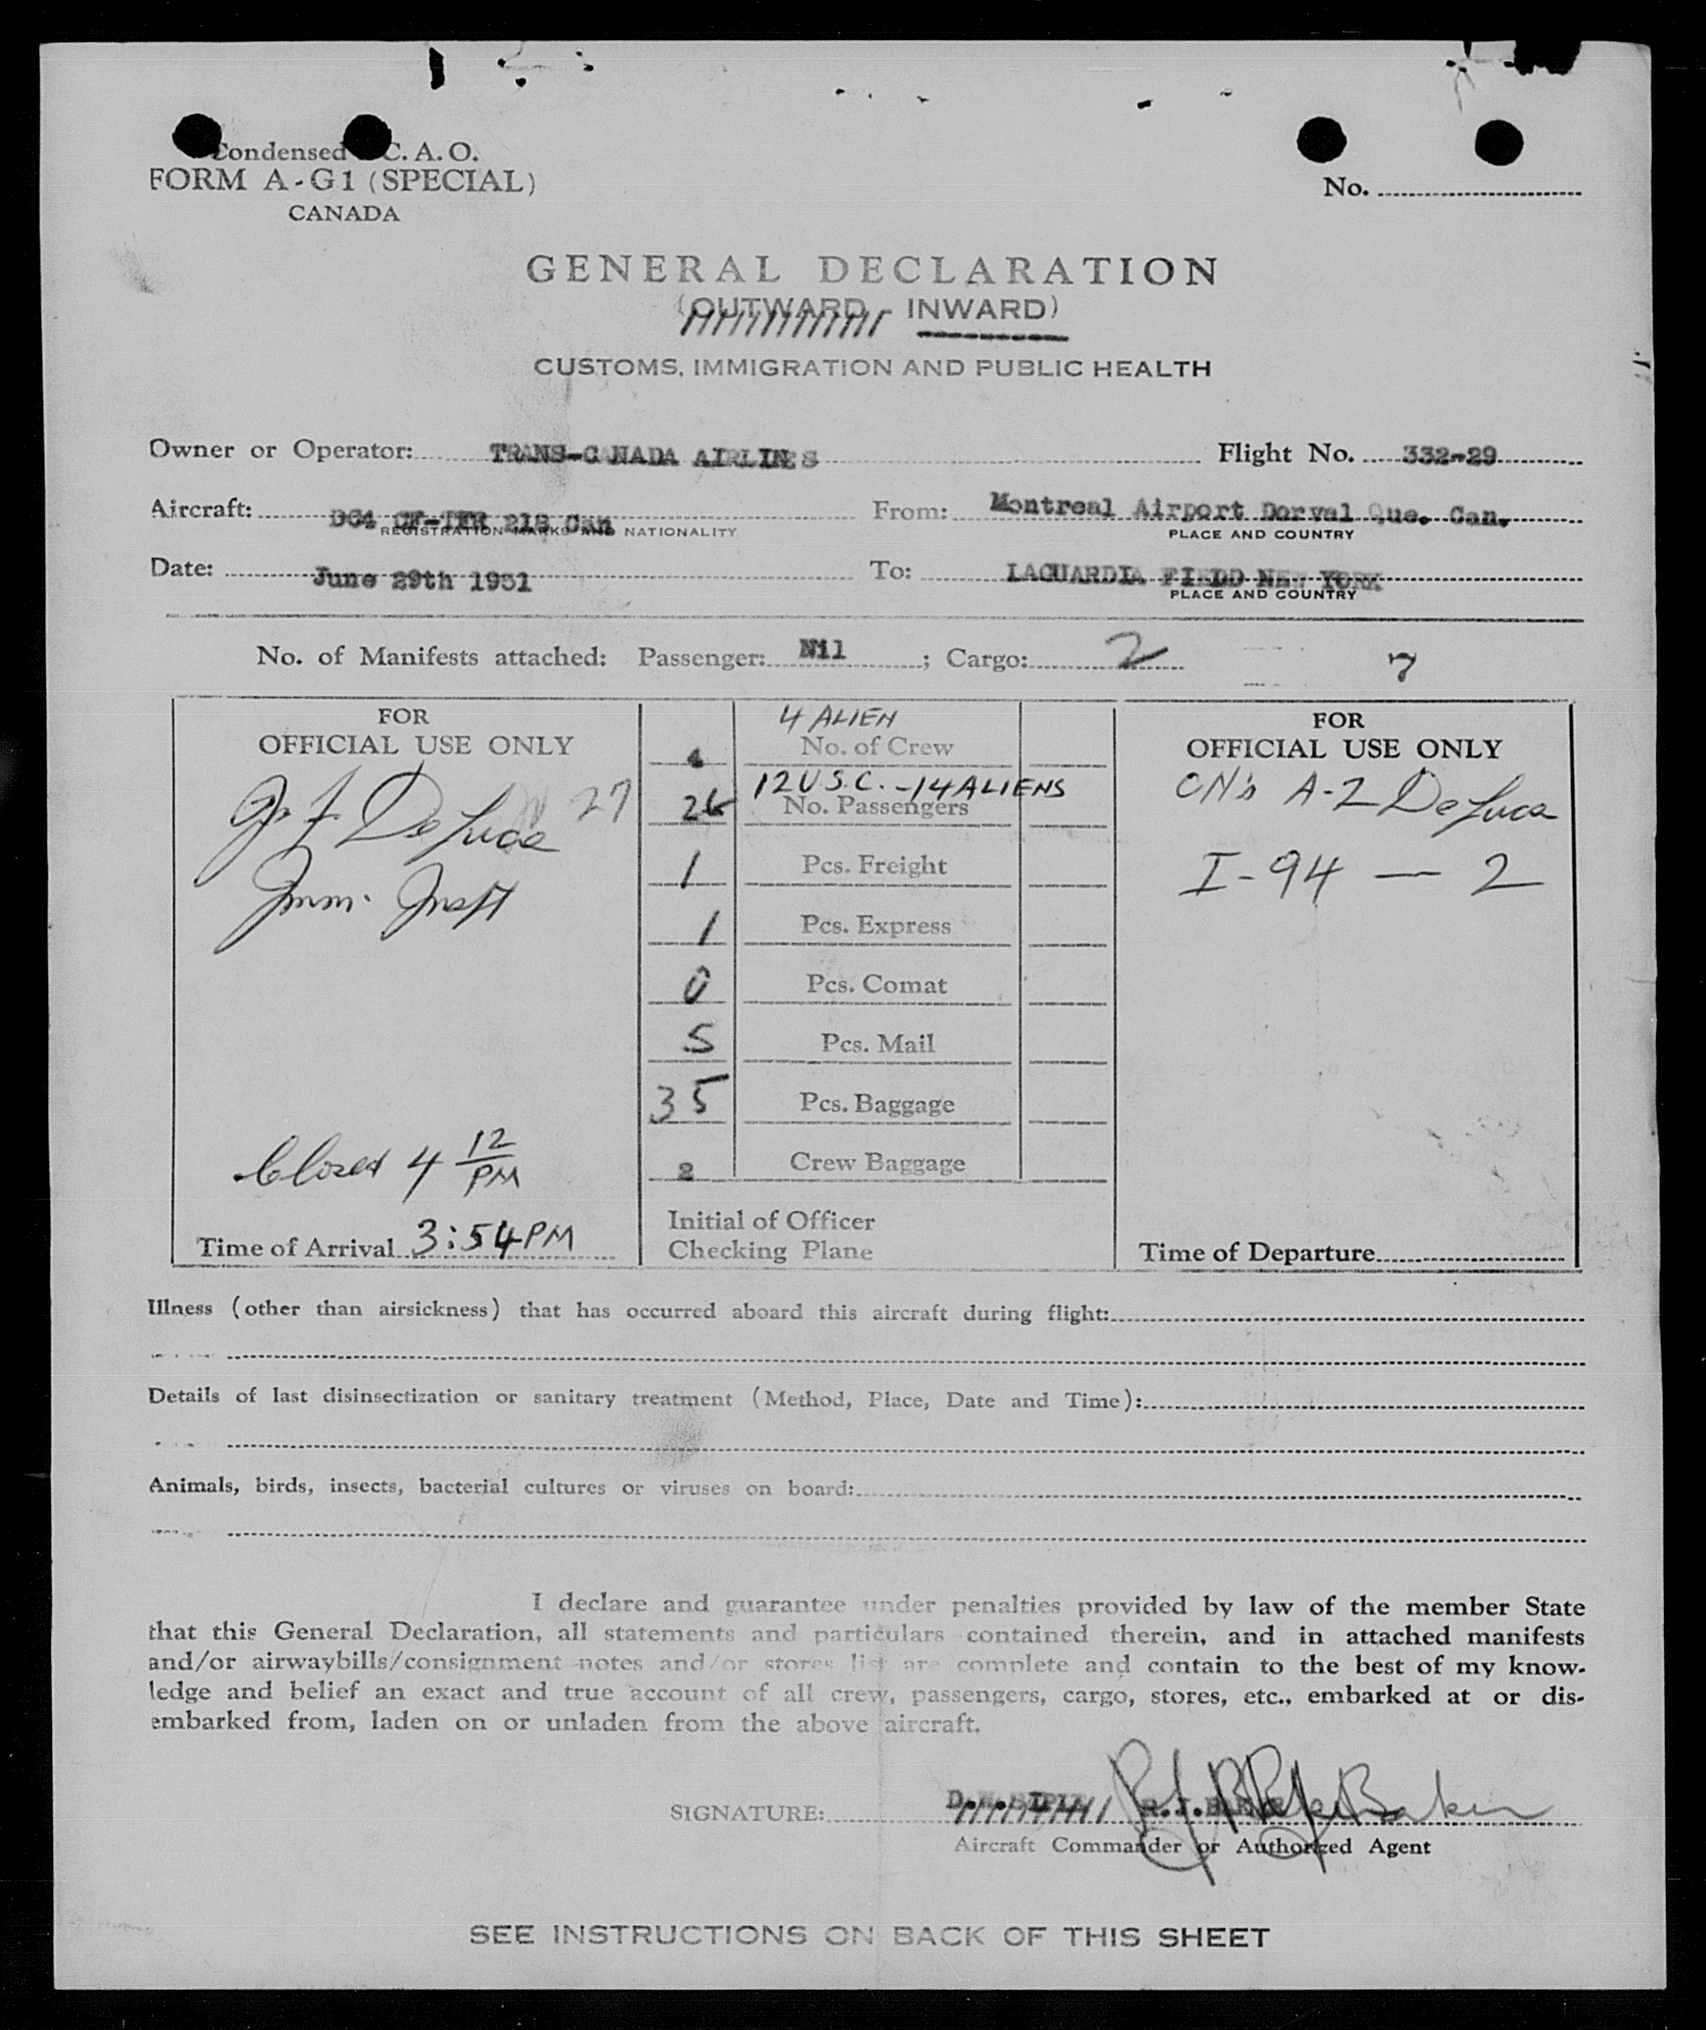 Condensed C. A. O.
FORM A-G1 (SPECIAL)
CANADA
No.
GENERAL DECLARATION
(OUTWARD - INWARD)
CUSTOMS, IMMIGRATION AND PUBLIC HEALTH
Owner or Operator: TRANS-CANADA AIRLINES Flight No. 332-29
Aircraft: DC4 CF-TFR 218 Can From: Montreal Airport Dorval Que. Can.
REGISTRATION MARKS AND NATIONALITY PLACE AND COUNTRY
Date: June 29th 1951 To: LAGUARDIA FIELD NEW YORK
PLACE AND COUNTRY
No. of Manifests attached: Passenger: Nil ; Cargo: 2 7
FOR
OFFICIAL USE ONLY
27
De Luca
Imm. Inspt
Closed 4 12 PM
Time of Arrival 3:54 PM
4 ALIEN
4 No. of Crew
12 U.S.C. - 14 ALIENS
26 No. Passengers
1 Pcs. Freight
1 Pcs. Express
0 Pcs. Comat
5 Pcs. Mail
35 Pcs. Baggage
2 Crew Baggage
Initial of Officer
Checking Plane
FOR
OFFICIAL USE ONLY
A-2 De Luca
I-94 — 2
Time of Departure
Illness (other than airsickness) that has occurred aboard this aircraft during flight:
Details of last disinsectization or sanitary treatment (Method, Place, Date and Time):
Animals, birds, insects, bacterial cultures or viruses on board:
I declare and guarantee under penalties provided by law of the member State
that this General Declaration, all statements and particulars contained therein, and in attached manifests
and/or airwaybills/consignment notes and/or stores list are complete and contain to the best of my know-
ledge and belief an exact and true account of all crew, passengers, cargo, stores, etc., embarked at or dis-
embarked from, laden on or unladen from the above aircraft.
SIGNATURE: R.J. BAKER Baker
Aircraft Commander or Authorized Agent
SEE INSTRUCTIONS ON BACK OF THIS SHEET